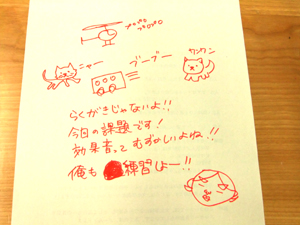 パパパパ
ニャー
ブーブー
ワンワン
らくがきじゃないよ!!
今日の課題です!
効果音ってむずかしいよね!!
俺も練習しよー!!